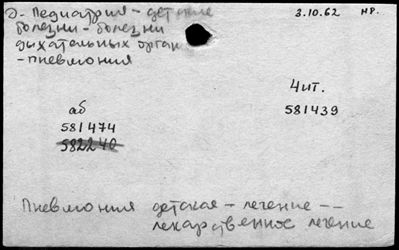 Э. Педиатрия - детские
болезни - болезни
дыхательных орган
- пневмония
3.10.62 НР.
Чит.
581439
аб
581474
582240
Пневмония детская - лечение --
лекарственное лечение